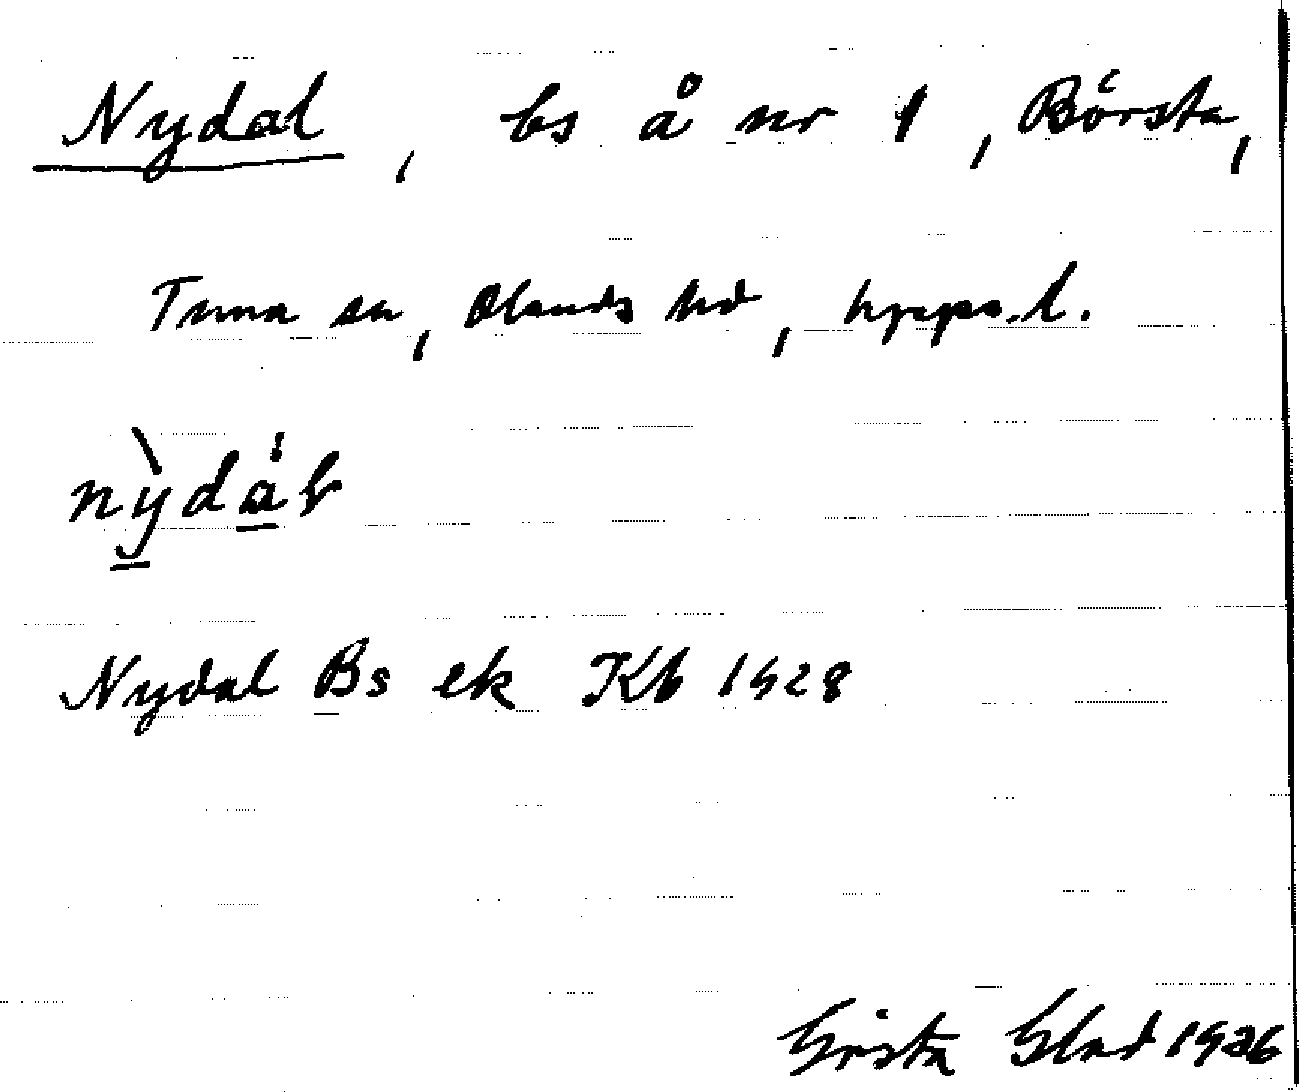 Nydal, bs å nr 1, Börsta,
Tuna sn, Olands hd, Upps. l.
nỳdàl
Nydal Bs ek Kb 1928
Gösta Blad 1936